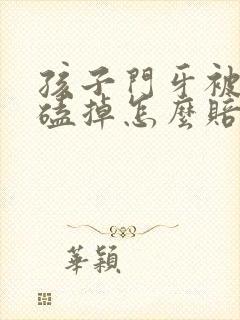 孩子門牙被
磕掉怎麼賠
華穎